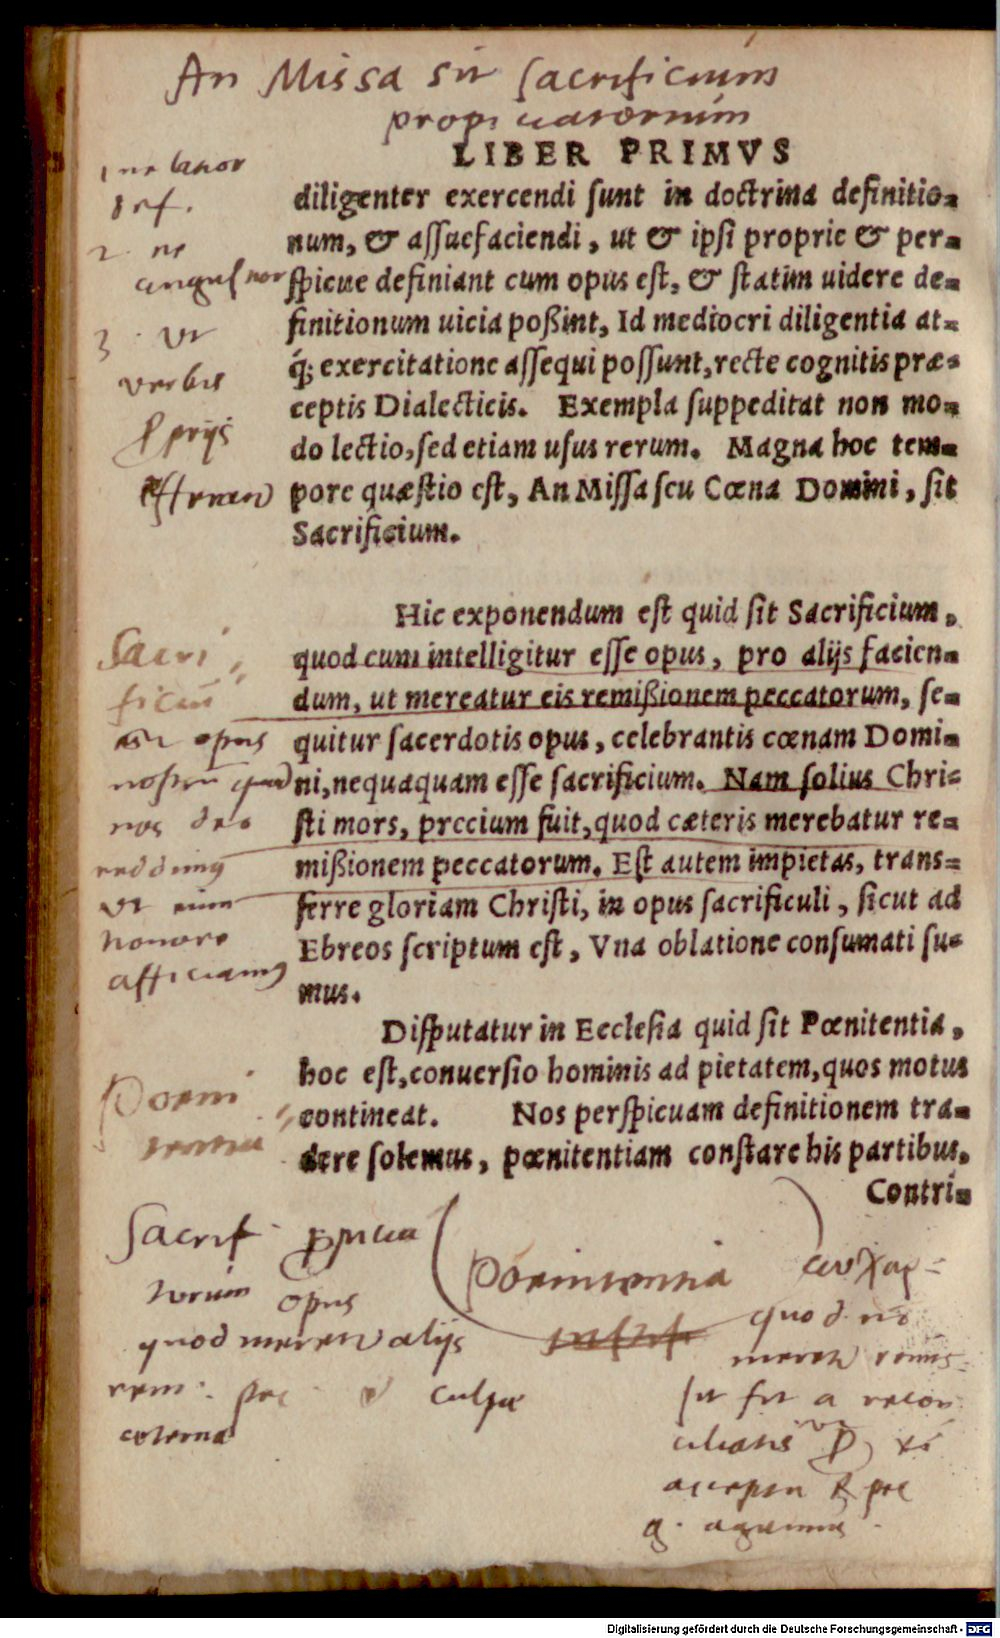 An Missa sit sacrificium
propitiatorium
LIBER PRIMVS
diligenter exercendi ſunt in doctrina definitio=
num, & aſſuefaciendi, ut & ipſi proprie & per=
ſpicue definiant cum opus eſt, & ſtatim uidere de=
finitionum uicia poßint, Id mediocri diligentia at=
q́; exercitatione aſſequi poſſunt, recte cognitis præ=
ceptis Dialecticis. Exempla ſuppeditat non mo=
do lectio, ſed etiam uſus rerum. Magna hoc tem=
pore quæſtio eſt, An Miſſa ſeu Cœna Domini, ſit
Sacrificium.
Hic exponendum eſt quid ſit Sacrificium,
quod cum intelligitur eſſe opus, pro alijs facien=
dum, ut mereatur eis remißionem peccatorum, ſe=
quitur ſacerdotis opus, celebrantis cœnam Domi=
ni, nequaquam eſſe ſacrificium. Nam ſolius Chri=
ſti mors, precium fuit, quod cæteris merebatur re=
mißionem peccatorum. Eſt autem impietas, trans=
ferre gloriam Chriſti, in opus ſacrificuli, ſicut ad
Ebreos ſcriptum eſt, Vna oblatione conſumati ſu=
mus.
Diſputatur in Eccleſia quid ſit Pœnitentia,
hoc eſt, conuerſio hominis ad pietatem, quos motus
contineat. Nos perſpicuam definitionem tra=
dere ſolemus, pœnitentiam conſtare his partibus.
Contri=
2. ne
3. Ut
verbis
Sacri
ficiu
est opus
nos deo
ut eum
honore
afficiamus
Poeni
tentia
Sacrif.
torium opus
quod meretur alijs
culpae
aeterna
Poenitentia
quod no
meretur remis
sit
Digitalisierung gefördert durch die Deutsche Forschungsgemeinschaft - DFG